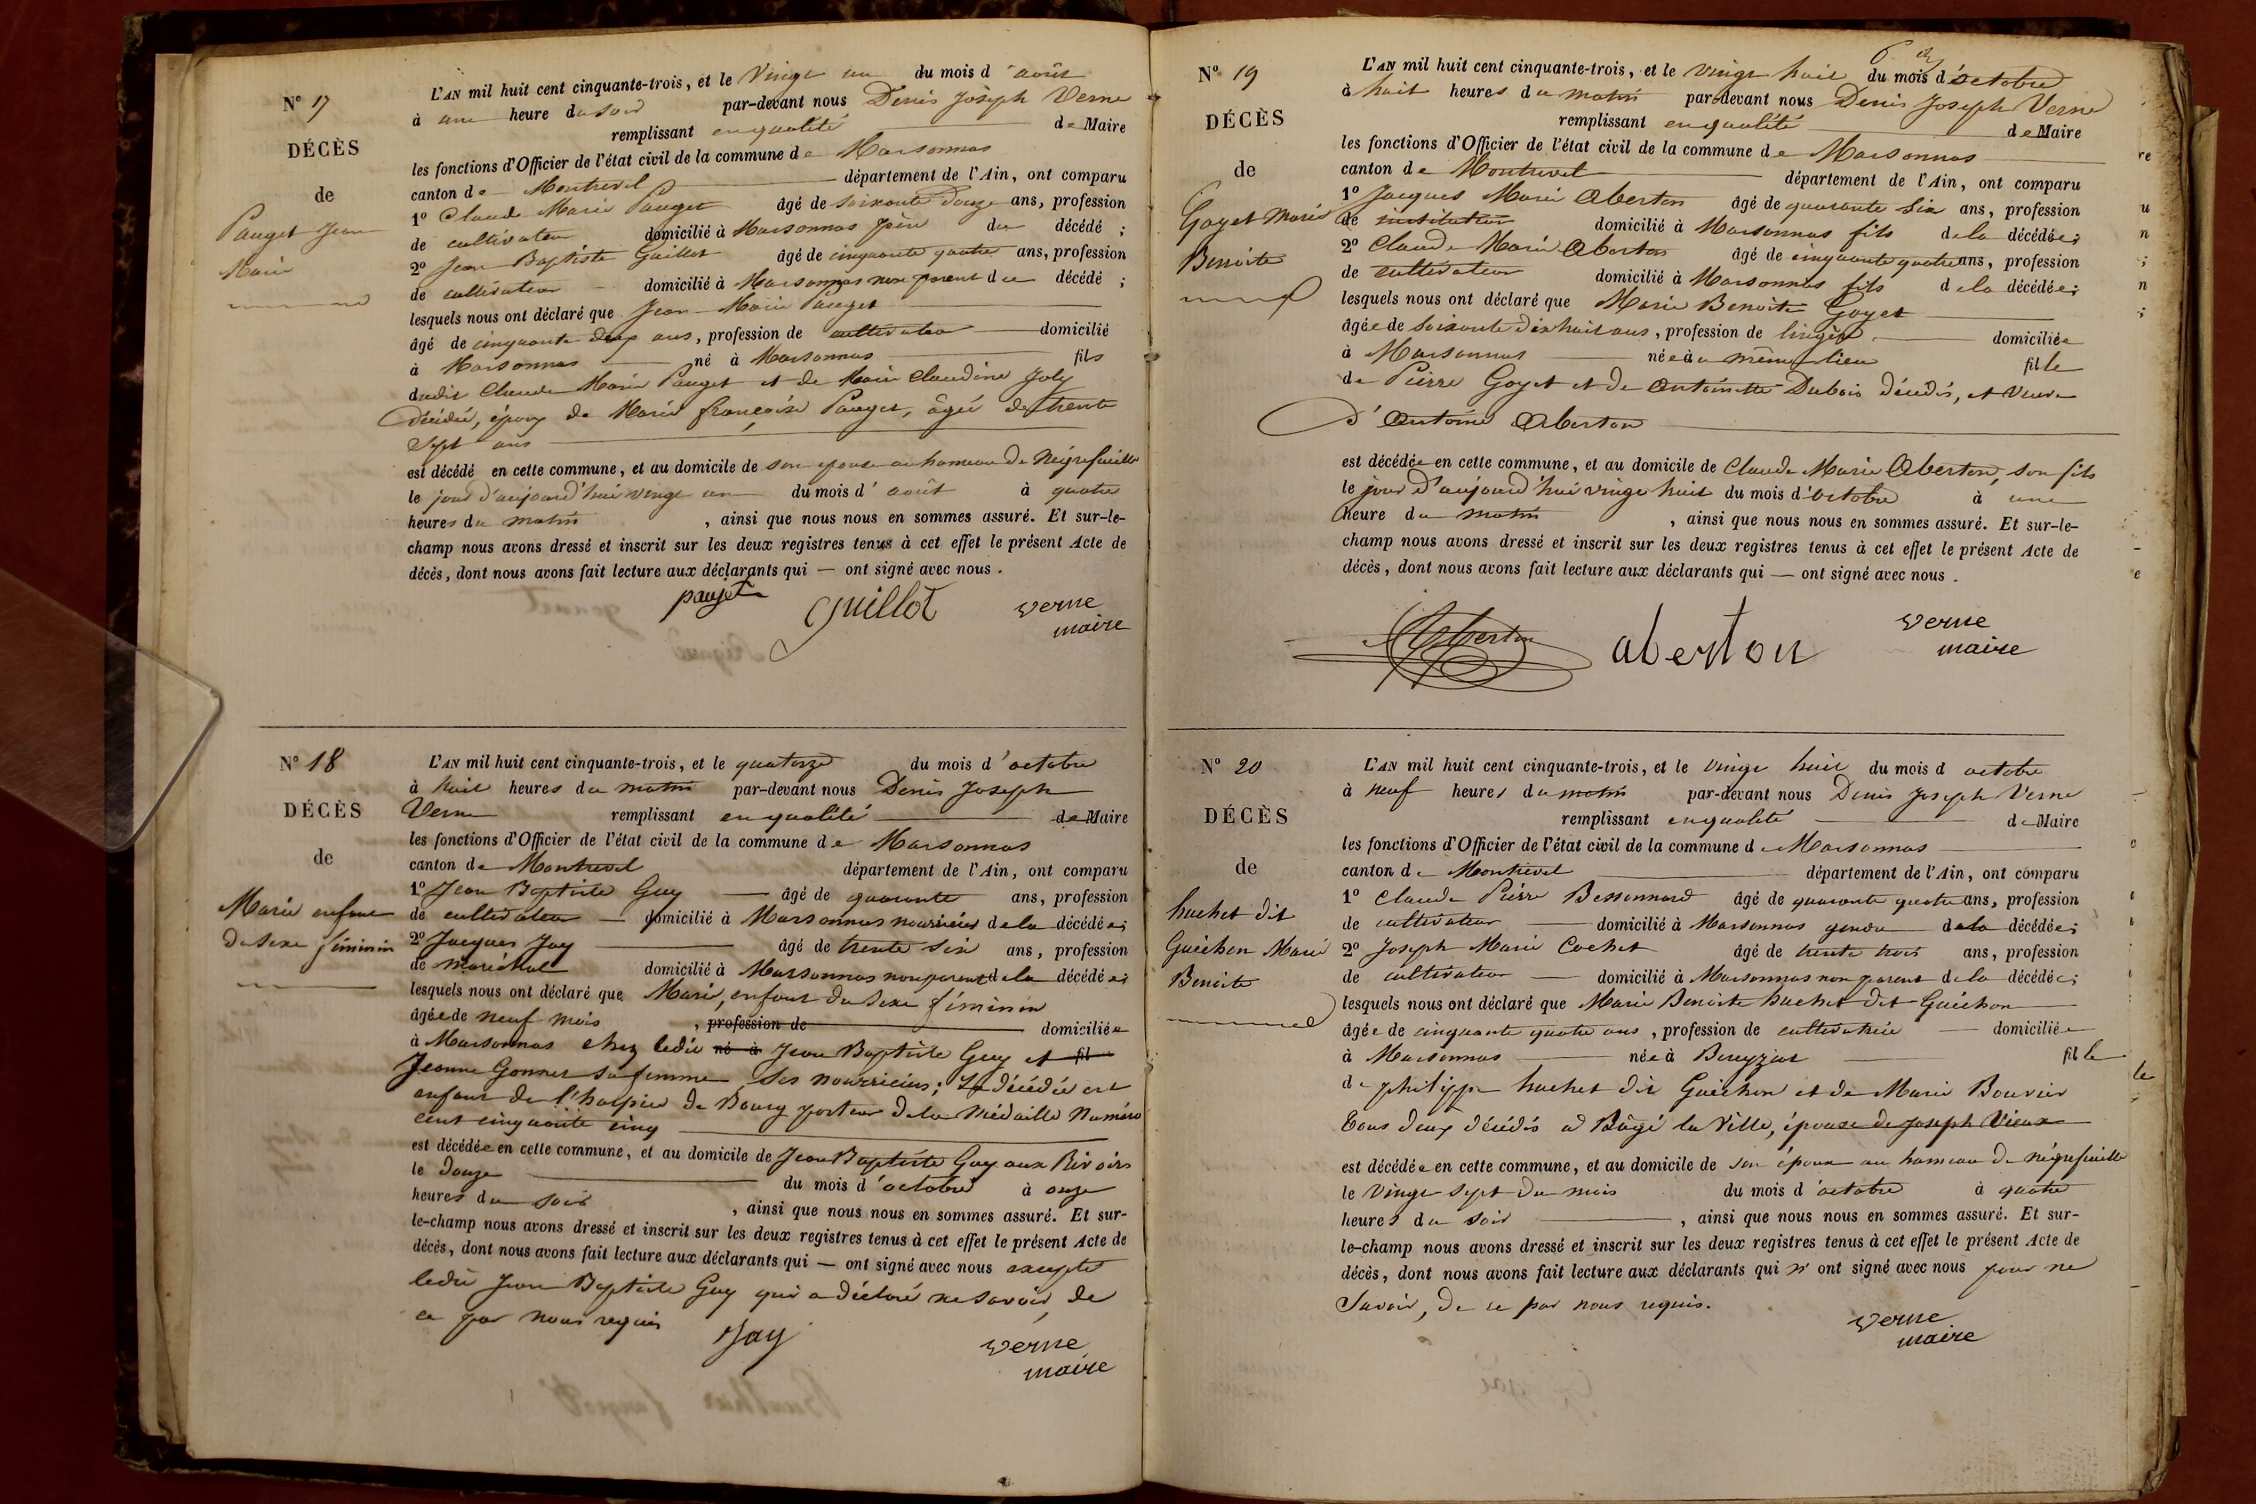 N° 17
DÉCÈS
de
Pauget Jean
Marie
L'AN mil huit cent cinquante-trois, et le vingt un du mois d'août
à une heure du soir par-devant nous Denis Joseph Verne
remplissant en qualité de Maire
les fonctions d'Officier de l'état civil de la commune de Marsonnas
canton de Montrevel département de l'Ain, ont comparu
1° Claude Marie Pauget âgé de soixante Douze ans, profession
de cultivateur domicilié à Marsonnas père du décédé ;
2° Jean Baptiste Guillot âgé de cinquante quatre ans, profession
de cultivateur domicilié à Marsonnas non parent du décédé ;
lesquels nous ont déclaré que Jean Marie Pauget
âgé de cinquante deux ans, profession de cultivateur domicilié
à Marsonnas né à Marsonnas fils
dudit Claude Marie Pauget et de Marie Claudine Joly
Décédée, époux de Marie françoise Pauget, âgée de trente
sept ans
est décédé en cette commune, et au domicile de son épouse au hameau de Négrefeuille
le jour d'aujourd'hui vingt un du mois d'août à quatre
heures du matin , ainsi que nous nous en sommes assuré. Et sur-le-
champ nous avons dressé et inscrit sur les deux registres tenus à cet effet le présent Acte de
décès, dont nous avons fait lecture aux déclarants qui — ont signé avec nous .
pauget guillot verne
maire
N° 18
DÉCÈS
de
Marie enfant
du sexe féminin
L'AN mil huit cent cinquante-trois, et le quatorze du mois d'octobre
à huit heures du matin par-devant nous Denis Joseph
Verne remplissant en qualité de Maire
les fonctions d'Officier de l'état civil de la commune de Marsonnas
canton de Montrevel département de l'Ain, ont comparu
1° Jean Baptiste Guy âgé de quarante ans, profession
de cultivateur domicilié à Marsonnas nourricier de la décédée ;
2° Jacques Jay âgé de trente six ans, profession
de maréchal domicilié à Marsonnas non parent de la décédée ;
lesquels nous ont déclaré que Marie, enfant du sexe féminin
âgée de neuf mois , profession de domiciliée
à Marsonnas chez ledit né à Jean Baptiste Guy et fil
Jeanne Gonnet sa femme, ses nourriciers ; la décédée est
enfant de l'hospice de Bourg porteur de la médaille Numéro
cent cinquante cinq
est décédée en cette commune, et au domicile de Jean Baptiste Guy aux Rivoirs
le douze du mois d'octobre à onze
heures du soir , ainsi que nous nous en sommes assuré. Et sur-
le-champ nous avons dressé et inscrit sur les deux registres tenus à cet effet le présent Acte de
décès, dont nous avons fait lecture aux déclarants qui — ont signé avec nous excepté
ledit Jean Baptiste Guy qui a déclaré ne savoir, de
ce par nous requis
Jay verne
maire
N° 19
DÉCÈS
de
Goyet Marie
Benoite
L'AN mil huit cent cinquante-trois, et le vingt huit du mois d'octobre
à huit heures du matin par-devant nous Denis Joseph Verne
remplissant en qualité de Maire
les fonctions d'Officier de l'état civil de la commune de Marsonnas
canton de Montrevel département de l'Ain, ont comparu
1° Jacques Marie Aberton âgé de quarante six ans, profession
de instituteur domicilié à Marsonnas fils de la décédée ;
2° Claude Marie Aberton âgé de cinquante quatre ans, profession
de cultivateur domicilié à Marsonnas fils de la décédée ;
lesquels nous ont déclaré que Marie Benoite Goyet
âgée de soixante dix huit ans, profession de lingère domiciliée
à Marsonnas née à u même lieu fille
de Pierre Goyet et de Antoinette Dubois décédés, et veuve
d'Antoine Aberton
est décédée en cette commune, et au domicile de Claude Marie Aberton, son fils
le jour d'aujourd'hui vingt huit du mois d'octobre à une
heure du matin , ainsi que nous nous en sommes assuré. Et sur-le-
champ nous avons dressé et inscrit sur les deux registres tenus à cet effet le présent Acte de
décès, dont nous avons fait lecture aux déclarants qui — ont signé avec nous .
Aberton aberton verne
maire
N° 20
DÉCÈS
de
huchet dit
Guichon Marie
Benoite
L'AN mil huit cent cinquante-trois, et le vingt huit du mois d octobre
à neuf heures du matin par-devant nous Denis Joseph Verne
remplissant en qualité de Maire
les fonctions d'Officier de l'état civil de la commune de Marsonnas
canton de Montrevel département de l'Ain, ont comparu
1° Claude Pierre Bessonnard âgé de quarante quatre ans, profession
de cultivateur domicilié à Marsonnas gendre de la décédée ;
2° Joseph Marie Cochet âgé de trente trois ans, profession
de cultivateur domicilié à Marsonnas non parent de la décédée ;
lesquels nous ont déclaré que Marie Benoite huchet dit Guichon
âgée de cinquante quatre ans, profession de cultivatrice domiciliée
à Marsonnas née à Bereyziat fille
de philippe huchet dit Guichon et de Marie Bouvier
tous deux décédés à Bâgé la Ville, épouse de Joseph Vieux
est décédée en cette commune, et au domicile de son époux au hameau de négrefeuille
le vingt sept du mois du mois d'octobre à quatre
heures du soir , ainsi que nous nous en sommes assuré. Et sur-
le-champ nous avons dressé et inscrit sur les deux registres tenus à cet effet le présent Acte de
décès, dont nous avons fait lecture aux déclarants qui n'ont signé avec nous pour ne
savoir, de ce par nous requis.
verne
maire